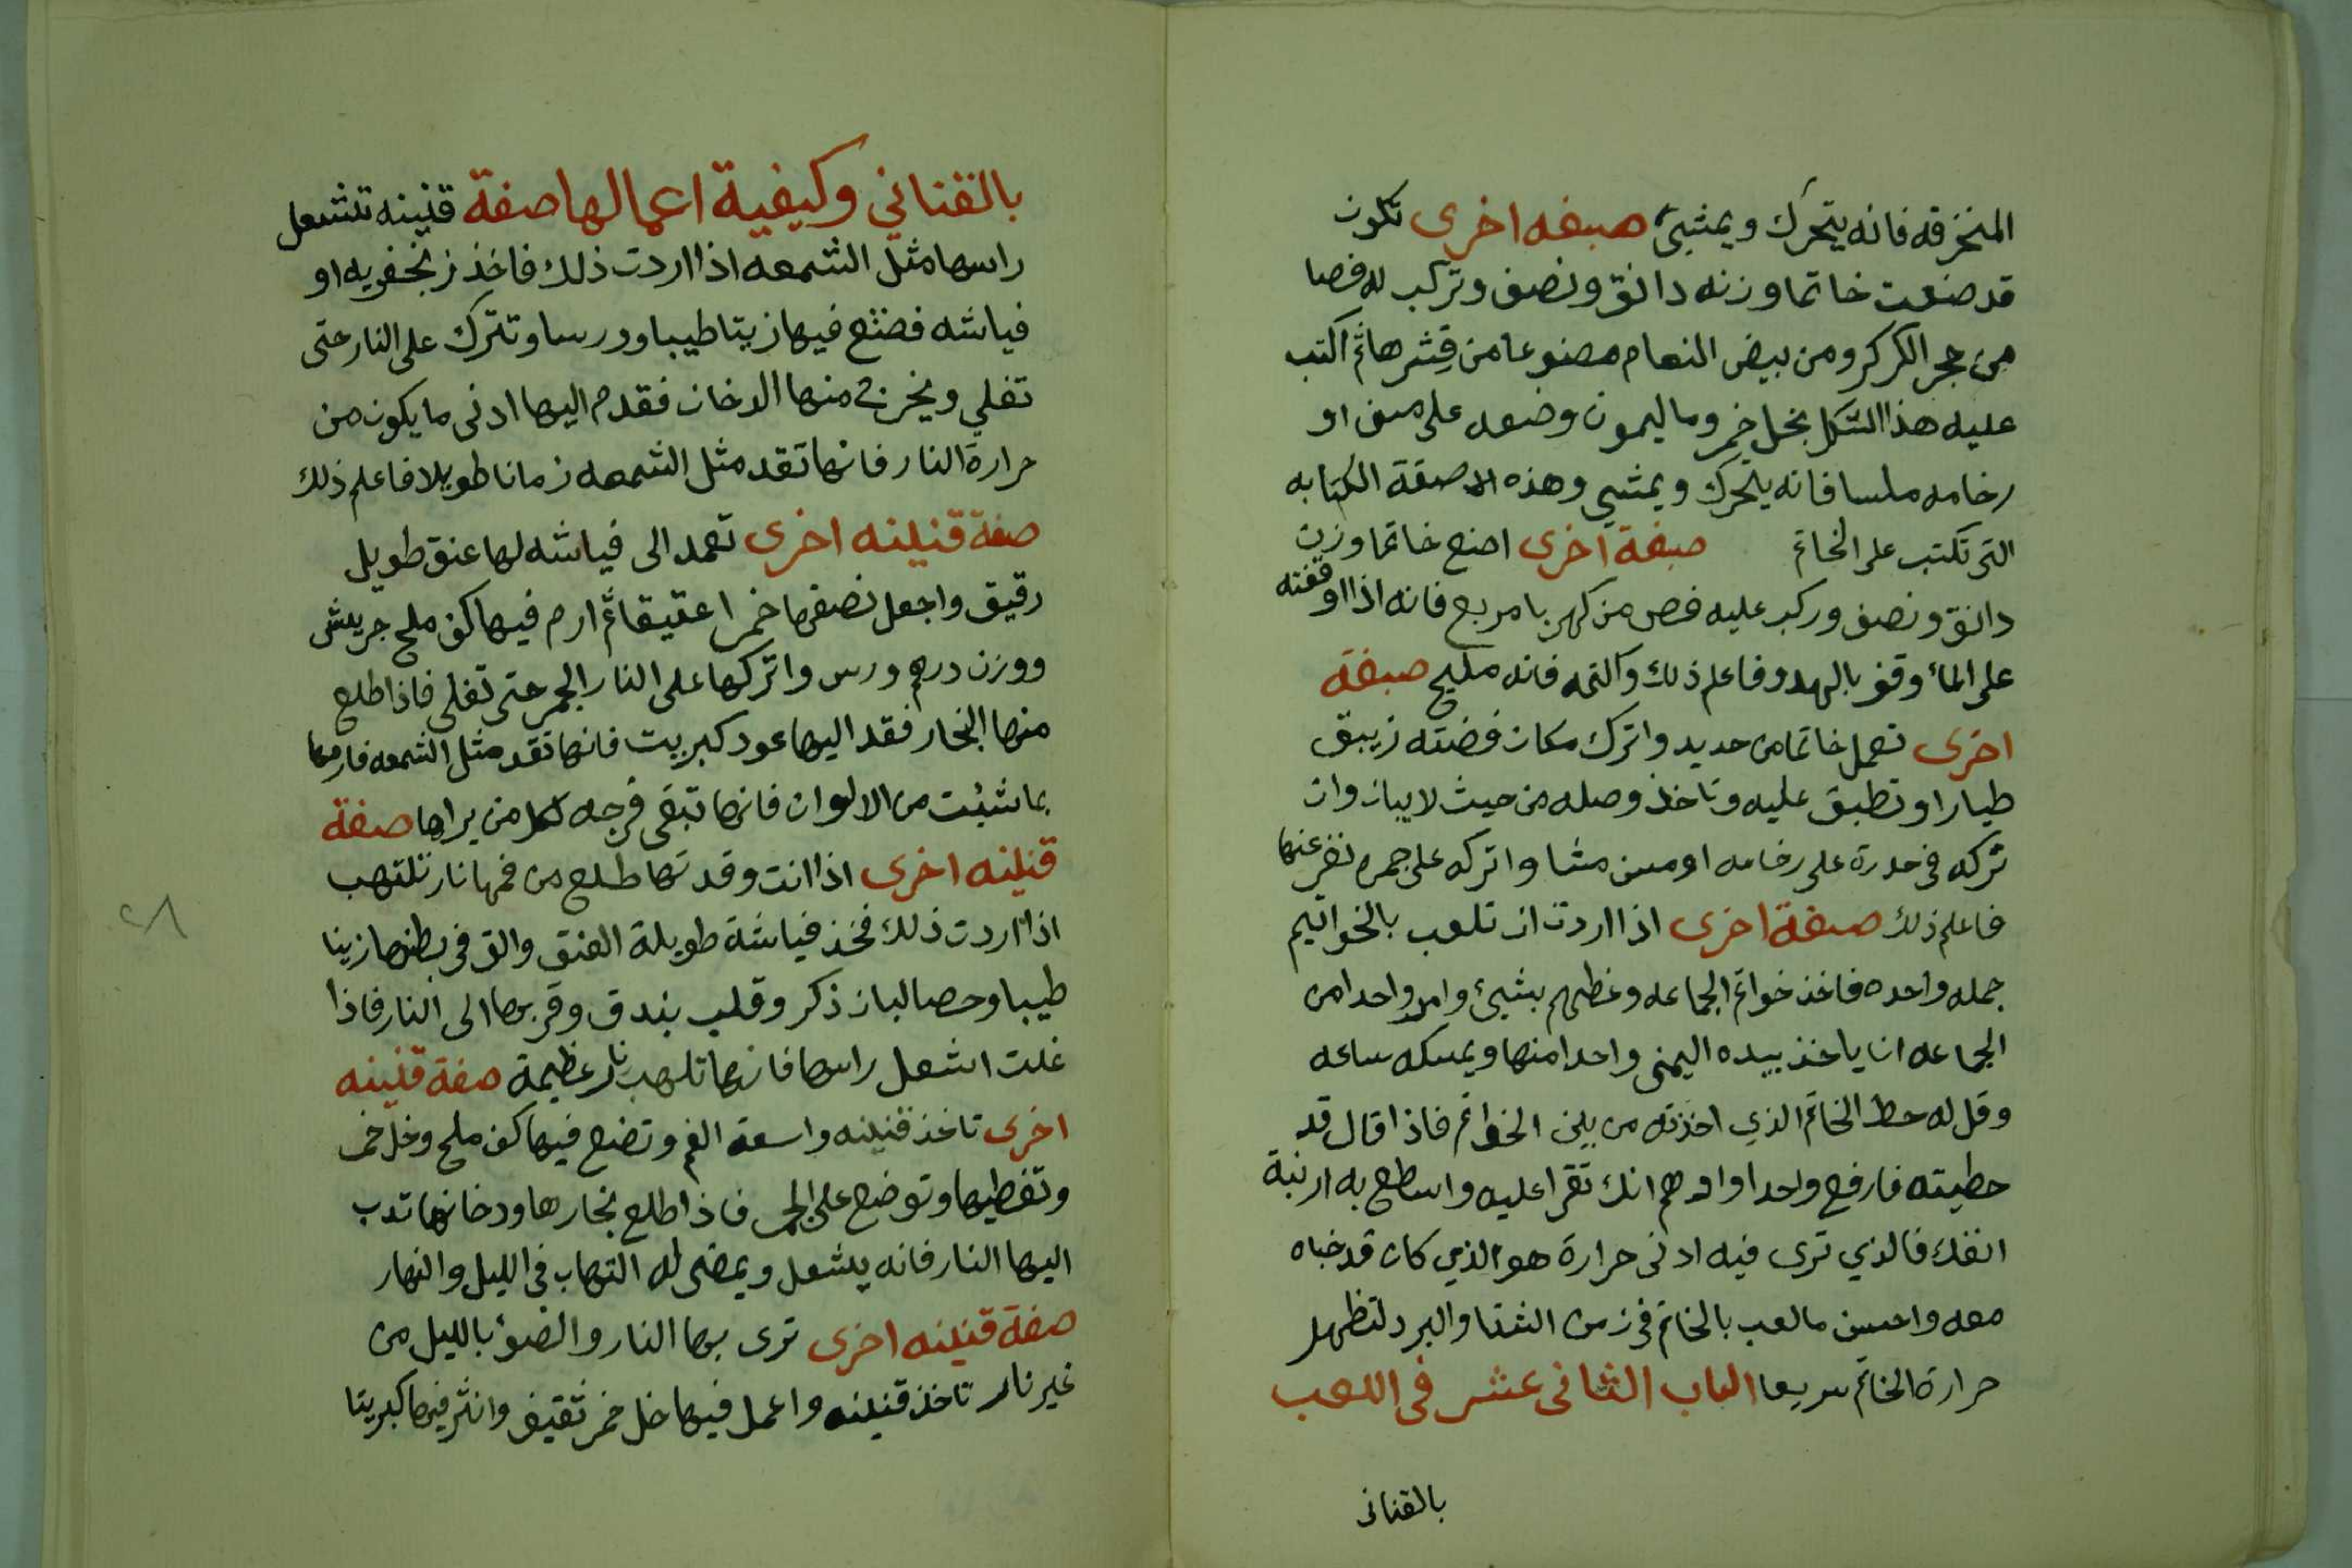 المنخرقه فانه يتحرك ويمشيئ صفه اخرى تكون
قد صنعت خاتما وزنه دانق ونصف وتركب له فصا
من حجر الكركر ومن بيض النعام مصنوعا من قشرها ثم اكتب
عليه هذا الشكل بخل خمر وما ليمون وضعه على مسن او
رخامه ملسا فانه يتحرك ويمشي وهذه الاصفة الكتابه
التى تكتب على الخاتم صفة اخرى اصنع خاتما وزن
دانق ونصف وركب عليه فص من كهربا مربع فانه اذا اوقفته
على المائ وقف بالهدو فاعلم ذلك واكتمه فانه مليح صفة
اخرى تعمل خاتما من حديد واترك مكان فضته زيبق
طيارا وتطبق عليه وتاخذ وصله من حيث لا يبان وان
تركه فى حدرة على رخامه او مسن مشا واتركه على جمره نفر عنها
فاعلم ذلك صفة اخرى اذا اردت ان تلعب بالخواتيم
جمله واحده فاخذ خواتم الجماعه وغطهم بشيئ وامر واحدا من
الجماعه انا ياخذ بيده اليمنى واحدا منها ويمسكه ساعه
وقل له حط الخاتم الذي اخذته من بين الخواتم فاذا قال قد
حطيته فارفع واحدا واوهم انك تقرا عليه واسطع به ارنبة
انفك فالذي ترى فيه ادنى حرارة هو الذي كان قد خباه
معه واحسن مالعب بالخاتم فى زمن الشتا والبرد لتظهر
حرارة الخاتم سريعا الباب الثانى عشر فى اللعب
بالقنانى
بالقناني وكيفية اعمالها صفة قنينه تشعل
راسها مثل الشمعه اذا اردت ذلك فاخذ زنجفريه او
فياشه فصنع فيها زيتا طيبا وورسا وتترك على النار حتى
تغلي ويخرج منها الدخان فقدم اليها ادنى ما يكون من
حرارة النار فانها تقد مثل الشمعه زمانا طويلا فاعلم ذلك
صفة قنينه اخرى تعمد الى فياشه لها عنق طويل
رقيق واجعل نصفها خمرا عتيقا ثم ارم فيها كف ملح جريش
ووزن درهم ورس واتركها على النار الجمر حتى تغلى فاذا طلع
منها البخار فقد اليها عود كبريت فانها تقد مثل الشمعه فارمها
بما شئت من الالوان فانها تبقى فرجه لكل من يراها صفة
قنينه اخرى اذا انت وقدتها طلع من فمها نار تلتهب
اذا اردت ذلك فخذ فياشة طويلة العنق والق فى بطنها زيتا
طيبا وحصالبان ذكر وقلب بندق وقربها الى النار فاذا
غلت اشعل راسها فانها تلهب نار عظيمة صفة قنينه
اخرى تاخذ قنينه واسعة الفم وتضع فيها كف ملح وخل خمر
وتغطيها وتوضع على الجمر فاذا طلع بخارها ودخانها تدب
اليها النار فانه يشعل ويمضى له التهاب فى الليل والنهار
صفة قنينه اخرى ترى بها النار والضوء بالليل من
غير نار تاخذ قنينه واعمل فيها خل خمر ثقيف وانثر فيها كبريتا